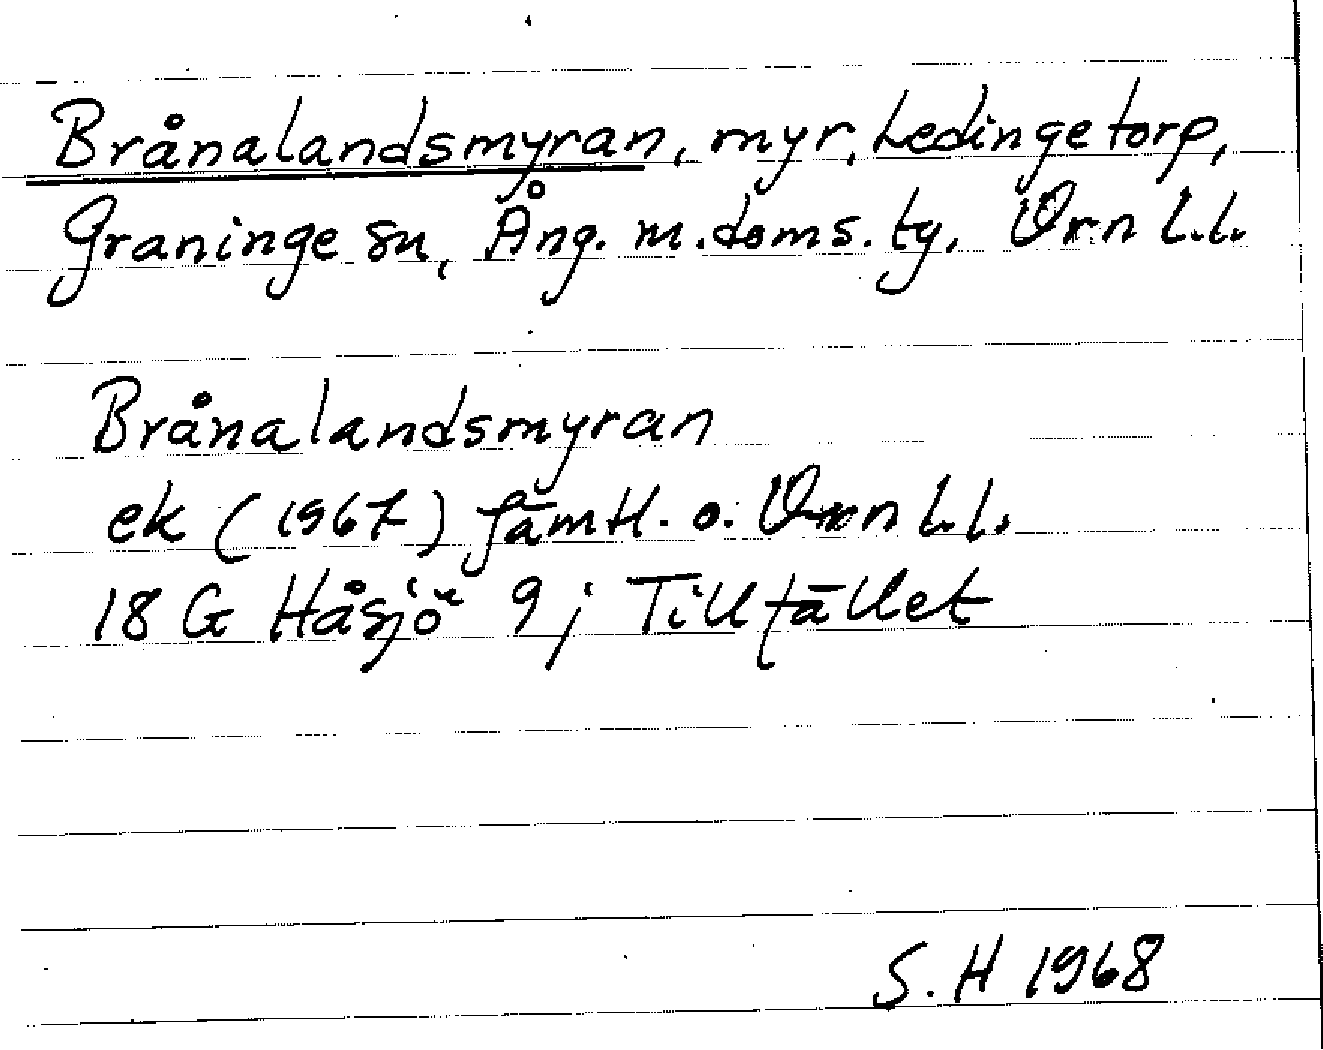 Brånalandsmyran, myr, Ledingetorp,
Graninge sn, Ång. m. doms. ty. Vrn l.l.
Brånalandsmyran
ek (1967) Jämtl. o. Vrn l.l.
18 G Håsjö 9 j Tillfället
S. H 1968